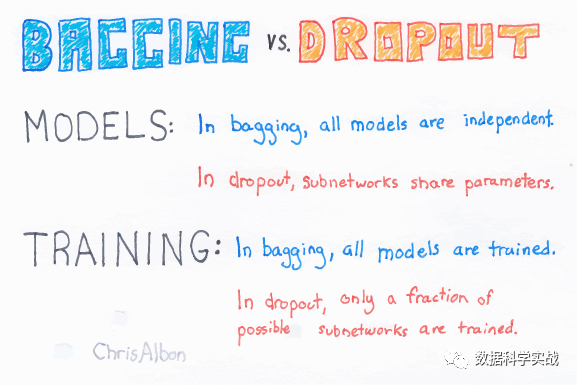 BAGGING vs. DROPOUT
MODELS: In bagging, all models are independent.
In dropout, subnetworks share parameters.
TRAINING: In bagging, all models are trained.
In dropout, only a fraction of
possible subnetworks are trained.
ChrisAlbon
数据科学实战